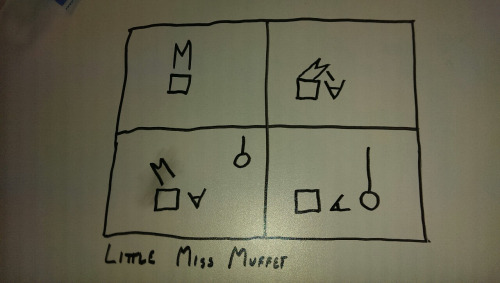 LITTLE MISS MUFFET